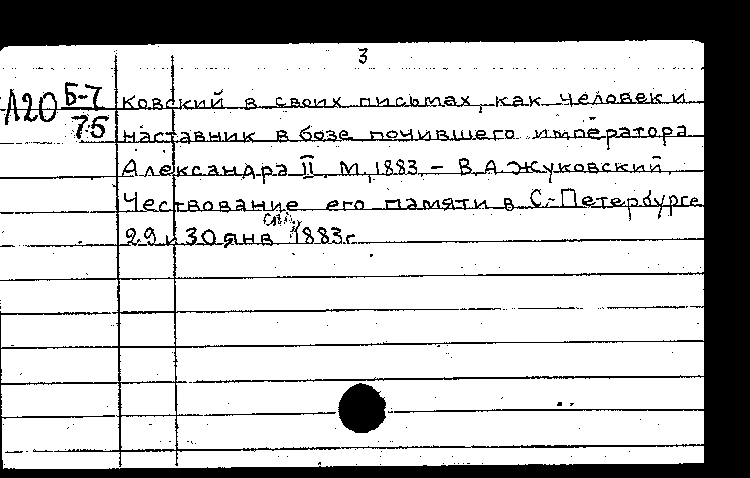 3
Л20 Б-7
75
ковский в своих письмах, как человек и
наставник в бозе почившего императора
Александра II. М., 1883. – В.А. Жуковский.
Чествование его памяти в С.-Петербурге
29 и 30 янв 1883 г.